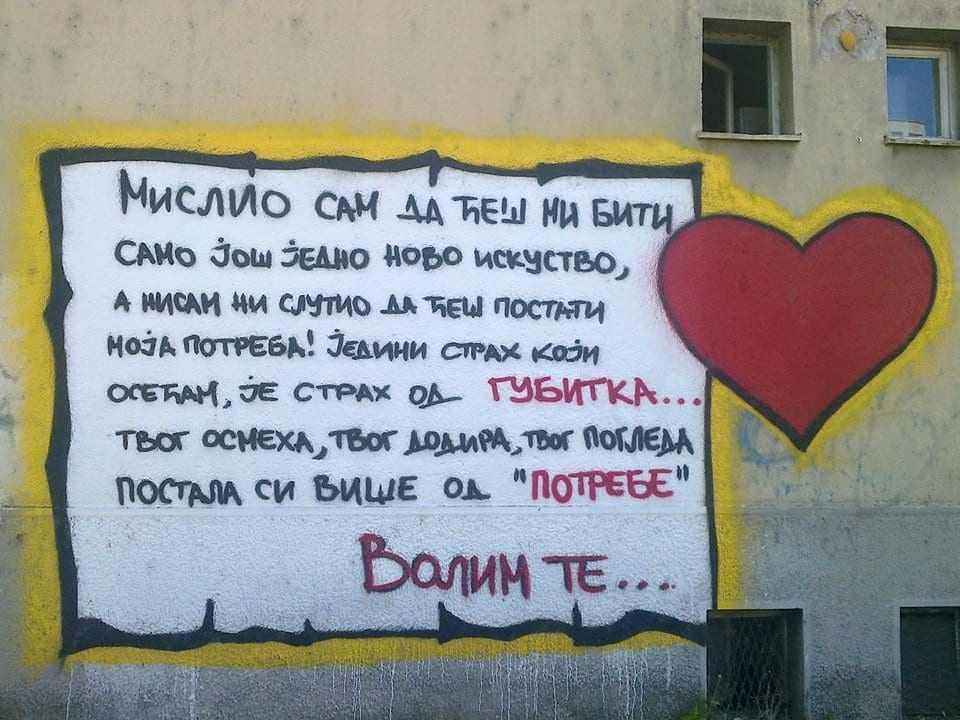 Мислио сам да ћеш ми бити
само још једно ново искуство,
а нисам ни слутио да ћеш постати
моја потреба! Једини страх који
осећам, је страх од губитка...
твог осмеха, твог додира, твог погледа
постала си више од "потребе"
Волим те...